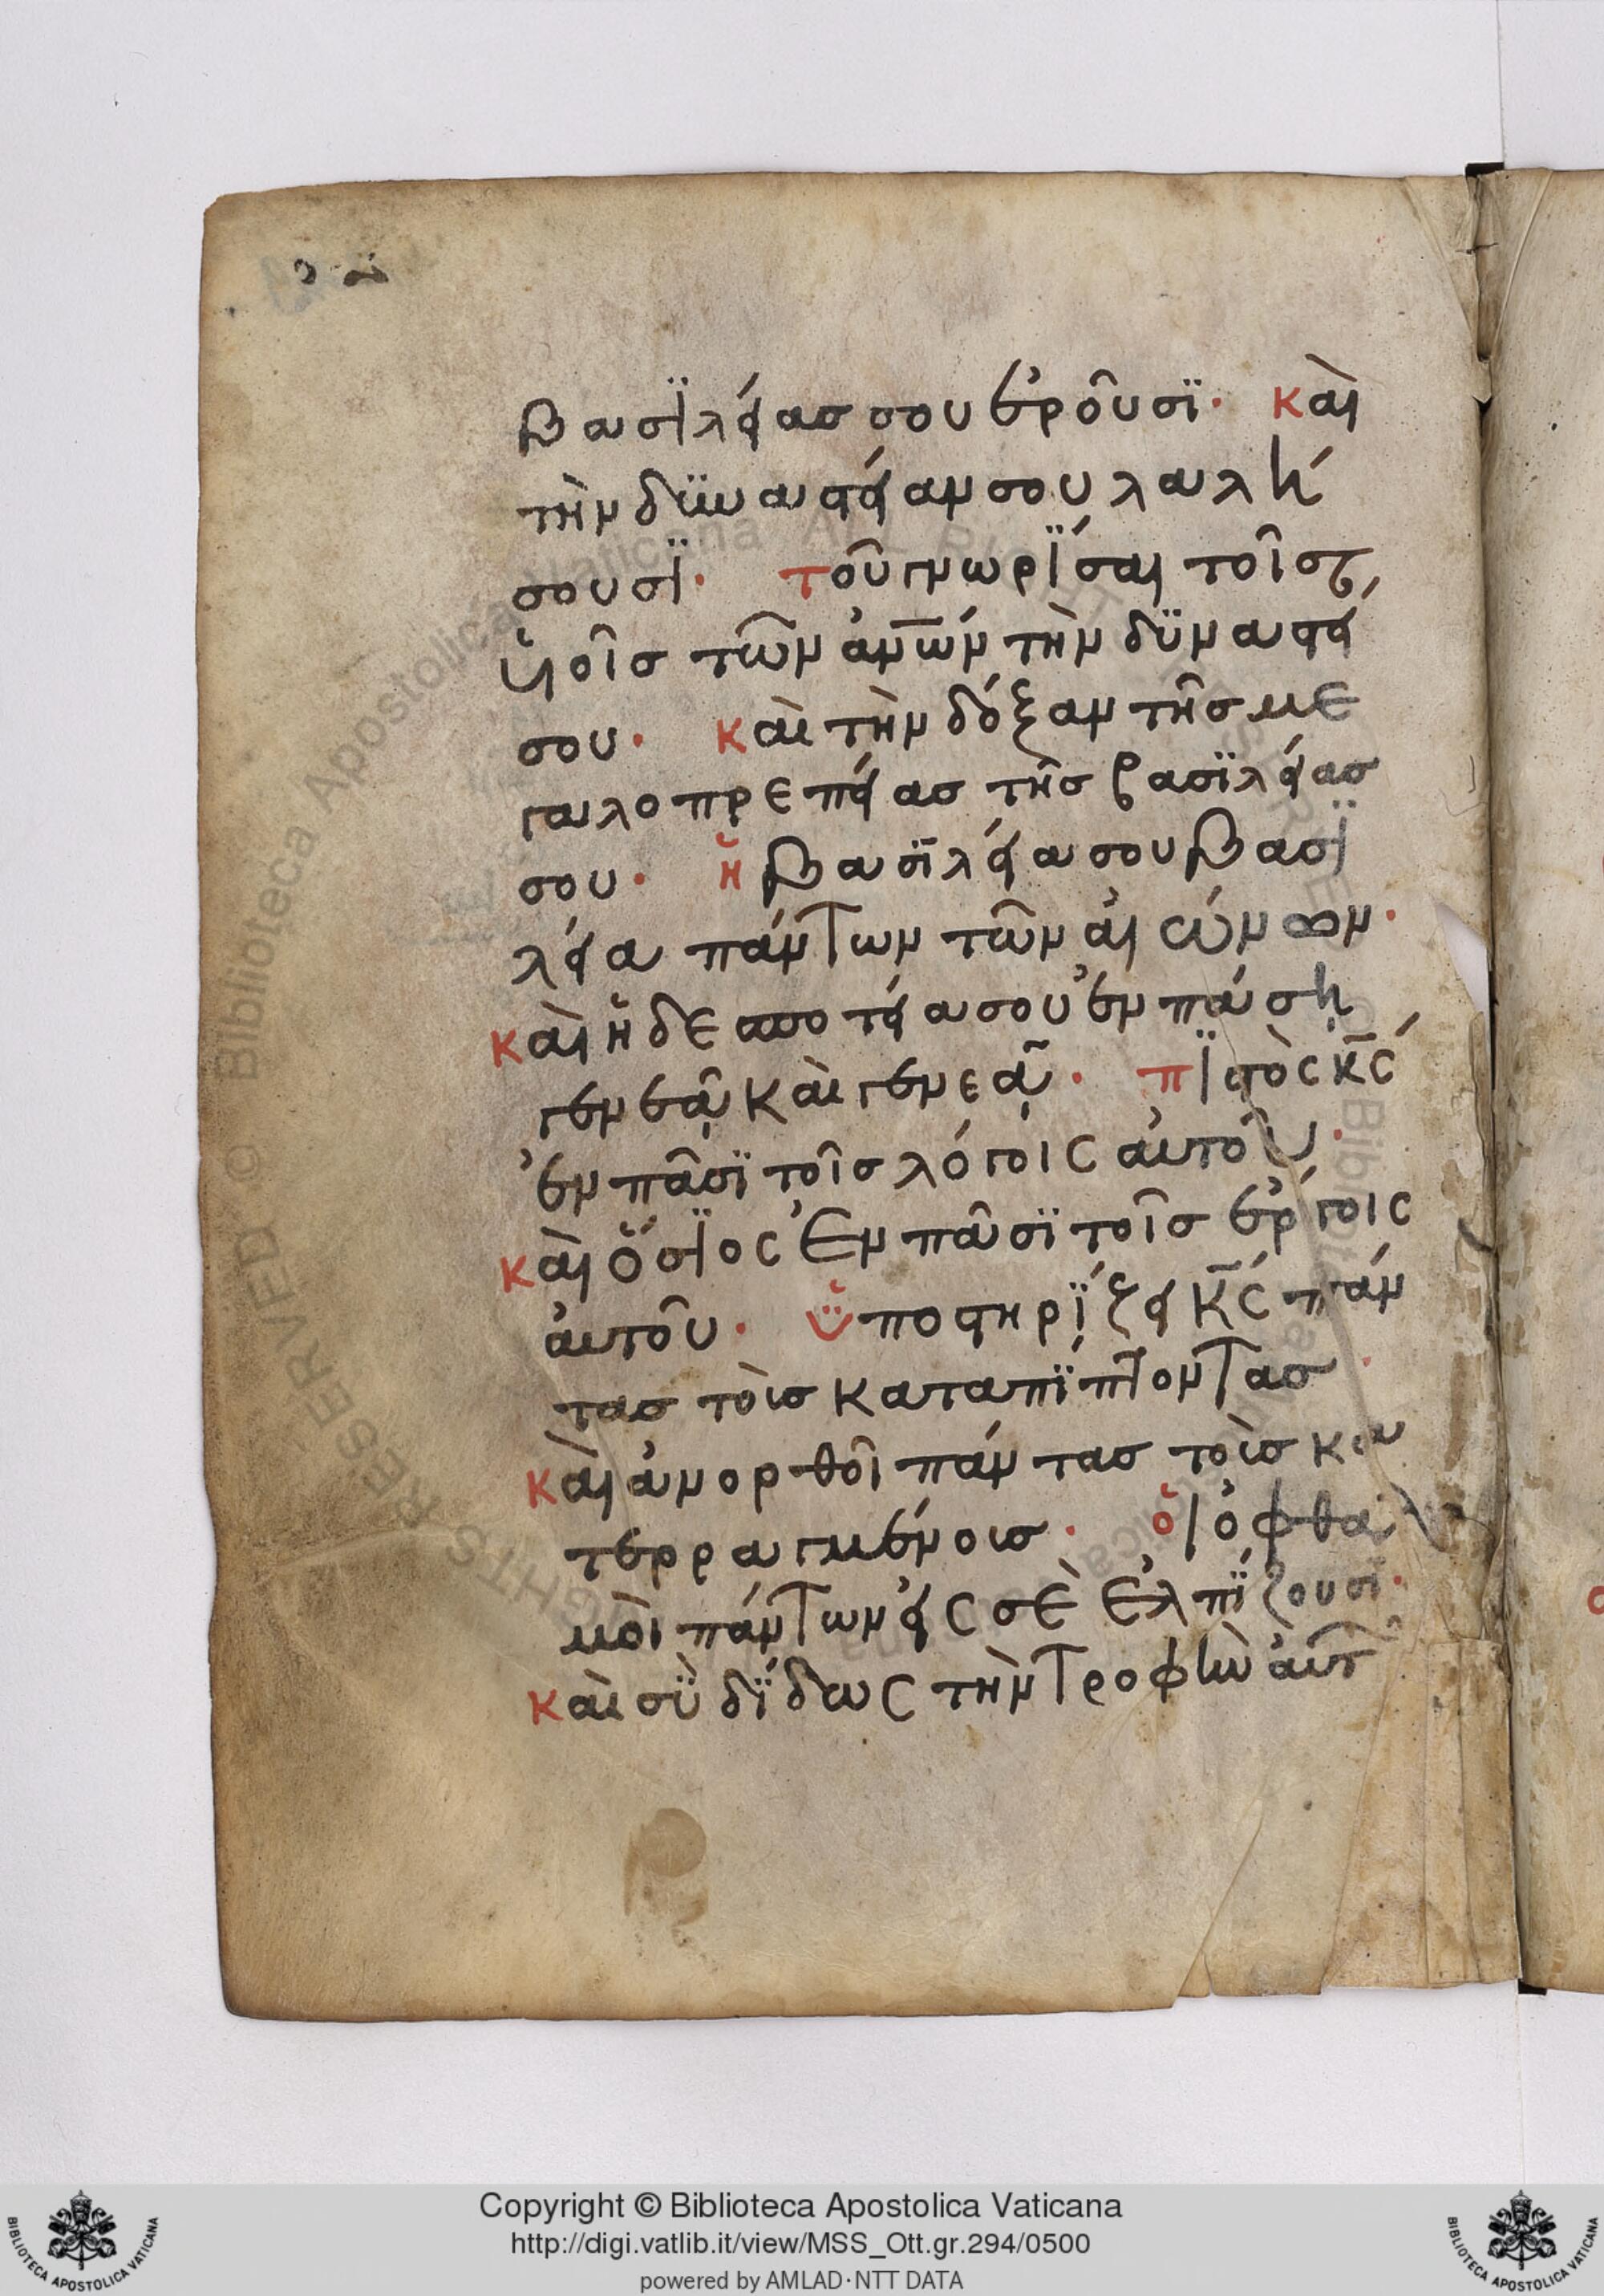 βασϊλείας σου ἐροῦσϊ· καὶ
τὴν δϋναστείαν σου λαλή
σουσϊ· τοῦ γνωρΐσαι τοῖς
ὑιοῖς τῶν ἀν̅ων́ τὴν δϋναστεί
σου· καὶ τὴν δόξαν τῆς με
γαλοπρεπείας τῆς βασϊλείας
σου· ἡ βασϊλεία σου βασϊ
λεία πάντων τῶν ἀιώνων·
καὶ ἡ δεσποτεία σου ἐν πάσῃ
γενεᾷ καὶ γενεᾷ· πϊστὸς κ̅ς́
ἐν πᾶσϊ τοῖς λόγοις ἀυτοῦ·
καὶ ὅσϊος ἐν πᾶσϊ τοῖς ἔργοις
ἀυτοῦ· ὑποστηρΐζει κ̅ς́ πάν
τας τοὺς καταπΐπτοντας·
καὶ ἀνορθοῖ πάντας τοὺς κα
τερραγμένους· ὁι ὀφθαλ
μὸι πάντων εἰς σὲ ἐλπΐζουσϊ·
καὶ σϋ δΐδως τὴν τροφὴν ἀυτ
Copyright © Biblioteca Apostolica Vaticana
http://digi.vatlib.it/view/MSS_Ott.gr.294/0500
powered by AMLAD·NTT DATA
BIBLIOTECA APOSTOLICA VATICANA
BIBLIOTECA APOSTOLICA VATICANA